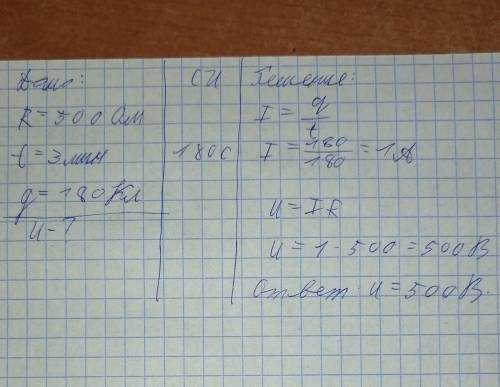 Дано:
R = 500 Ом
t = 3 мин
q = 180 Кл
U - ?
СИ
180 с
Решение:
I = q/t
I = 180/180 = 1 А
U = IR
U = 1 · 500 = 500 В
Ответ U = 500 В.